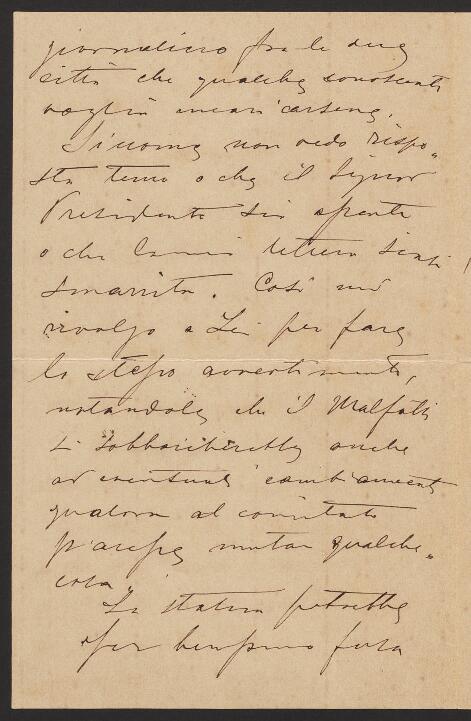 giornaliero fra le due
città che qualche conoscente
voglia incaricarsene.
Siccome non vedo rispo„
sta temo o che il Signor
Presidente sia assente
o che la mia lettera siasi
smarrita. Così mi
rivolgo a Lei per fare
lo stesso avvertimento,
notandole che il Malfatti
si sobbarcherebbe anche
ad eventuali cambiamenti
qualora al comitato
piacesse mutar qualche„
cosa.
La statua potrebbe
esser benissimo fusa